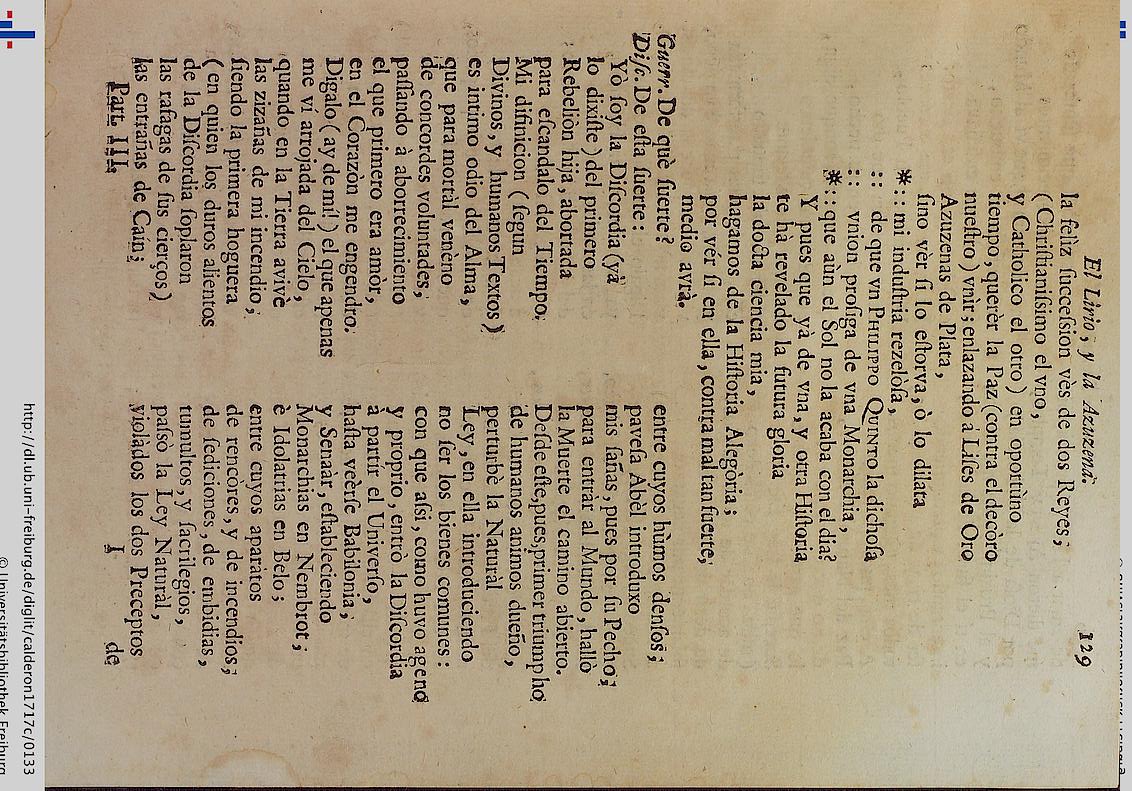 El Lirio, y la Azuzena.
129
la felìz ſucceſsion vès de dos Reyes;
(Chriſtianiſsimo el vno,
y Catholico el otro) en oportùno
tiempo, querèr la Paz (contra el decòro
nueſtro) vnir; enlazando à Liſes de Oro
Azuzenas de Plata,
ſino vèr ſi lo eſtorva, ò lo dilata
*:: mi induſtria rezelòſa,
:: de que vn PHILIPPO QUINTO la dichoſa
:: vnion proſiga de vna Monarchia,
*:: que aùn el Sol no la acaba con el dia?
Y pues que yà de vna, y otra Hiſtoria
te hà revelado la futura gloria
la docta ciencia mia,
hagamos de la Hiſtoria Alegòria;
por vér ſi en ella, contra mal tan fuerte,
medio avrà.
Guerr. De què ſuerte?
Diſc. De eſta ſuerte:
Yò ſoy la Diſcordia (yà
lo dixiſte) del primero
Rebeliòn hija, abortada
para eſcandalo del Tiempo:
Mi difinicion (ſegun
Divinos, y humanos Textos)
es intimo odio del Alma,
que para mortàl venèno
de concordes voluntades,
paſſando à aborrecimiento
el que primero era amòr,
en el Corazòn me engendro.
Digalo (ay de mi!) el que apenas
me vì arrojada del Cielo,
quando en la Tierra avivè
las zizañas de mi incendio,
ſiendo la primera hoguera
(en quien los duros alientos
de la Diſcordia ſoplaron
las rafagas de ſus cierços)
las entrañas de Caìn;
entre cuyos hùmos denſos,
paveſa Abèl introduxo
mis ſañas, pues por ſu Pecho,
para entràr al Mundo, hallò
la Muerte el camino abierto.
Deſde eſte, pues, primer triumpho
de humanos animos dueño,
perturbè la Naturàl
Ley, en ella introduciendo
no ſer los bienes comunes:
con que aſsi, como huvo ageno
y proprio, entrò la Diſcordia
à partir el Univerſo,
haſta veèrſe Babilonia,
y Senaàr, eſtableciendo
Monarchias en Nembrot;
è Idolatrias en Belo;
entre cuyos aparatos
de rencòres, y de incendios,
de ſediciones, de embidias,
tumultos, y ſacrilegios,
paſsò la Ley Natural,
violàdos los dos Preceptos
Part. III.
I
de
http://dl.ub.uni-freiburg.de/diglit/calderon1717c/0133
© Universitätsbibliothek Freiburg